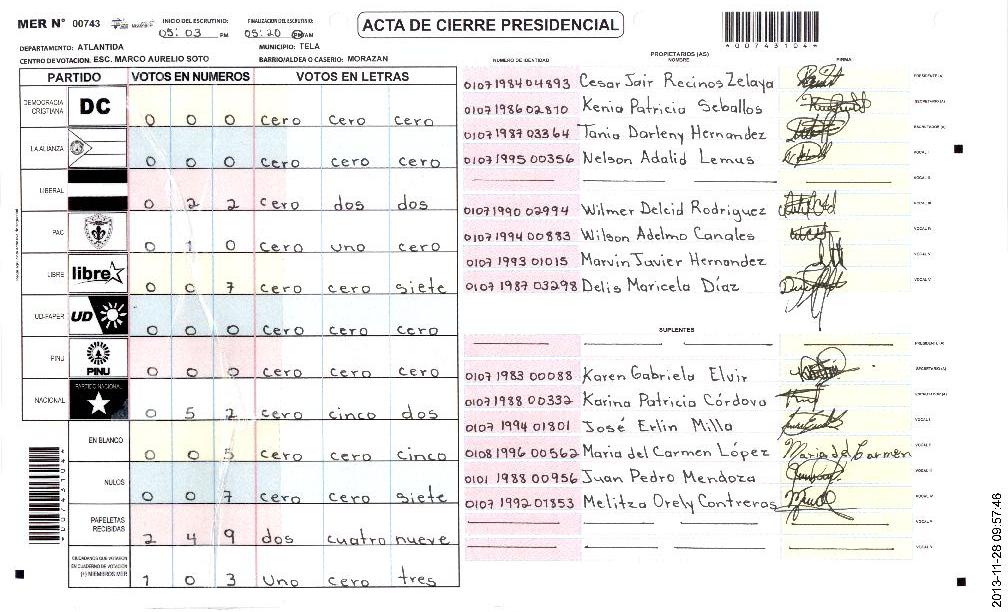 MER N° 00743
INICIO DEL ESCRUTINIO: 05:03 PM
FINALIZACION DEL ESCRUTINIO: 05:20 PM AM
ACTA DE CIERRE PRESIDENCIAL
*00743104*
DEPARTAMENTO: ATLANTIDA
MUNICIPIO: TELA
CENTRO DE VOTACION: ESC. MARCO AURELIO SOTO
BARRIO/ALDEA O CASERIO: MORAZAN
PARTIDO VOTOS EN NUMEROS VOTOS EN LETRAS
DEMOCRACIA CRISTIANA DC 0 0 0 cero cero cero
LA ALIANZA 0 0 0 cero cero cero
LIBERAL 0 2 2 cero dos dos
PAC 0 1 0 cero uno cero
LIBRE libre 0 0 7 cero cero siete
UD-FAPER UD 0 0 0 cero cero cero
PINU PINU 0 0 0 cero cero cero
NACIONAL PARTIDO NACIONAL 0 5 2 cero cinco dos
EN BLANCO 0 0 5 cero cero cinco
NULOS 0 0 7 cero cero siete
PAPELETAS RECIBIDAS 2 4 9 dos cuatro nueve
CIUDADANOS QUE VOTARON EN CUADERNO DE VOTACION (+) MIEMBROS MER 1 0 3 uno cero tres
PROPIETARIOS (AS)
NUMERO DE IDENTIDAD NOMBRE FIRMA
0107198404893 Cesar Jair Recinos Zelaya PRESIDENTE (A)
0107198602810 Kenia Patricia Seballos SECRETARIO (A)
0107198703364 Tania Darleny Hernandez ESCRUTADOR (A)
0107199500356 Nelson Adalid Lemus VOCAL I
VOCAL II
0107199002994 Wilmer Delcid Rodriguez VOCAL III
0107199400883 Wilson Adelmo Canales VOCAL IV
0107199301015 Marvin Javier Hernandez VOCAL V
0107198703298 Delis Maricela Díaz
SUPLENTES
PRESIDENTE (A)
0107198300088 Karen Gabriela Elvir SECRETARIO (A)
0107198800332 Karina Patricia Córdova ESCRUTADOR (A)
0107199401801 José Erlin Milla VOCAL I
0108199600562 Maria del Carmen López Maria del Carmen VOCAL II
0101198800956 Juan Pedro Mendoza VOCAL III
0107199201853 Melitza Orely Contreras VOCAL IV
VOCAL V
2013-11-28 09:57:46